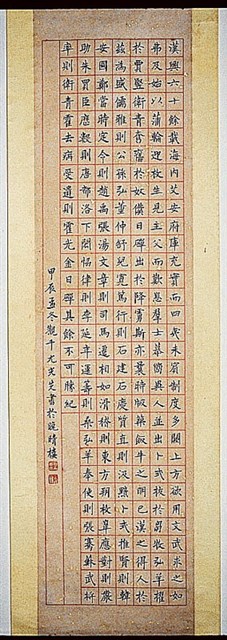 漢興六十餘載海内艾安府庫充實而四夷未賓制度多闕上方欲用文武求之如
弗及始以蒲輪迎枚生見主父而歎息羣士慕嚮異人並出卜式拔於芻牧弘羊擢
於賈豎衛青奮於奴僕日磾出於降虜斯亦曩時版築飯牛之明已漢之得人於
茲為盛儒雅則公孫弘董仲舒兒寬篤行則石建石慶質直則汲黯卜式推賢則韓
安國鄭當時定令則趙禹張湯文章則司馬遷相如滑稽則東方朔枚皋應對則嚴
助朱買臣歷數則唐都洛下閎協律則李延年運籌則桑弘羊奉使則張騫蘇武將
率則衛青霍去病受遺則霍光金日磾其餘不可勝紀
甲辰孟冬觀書於晚晴樓